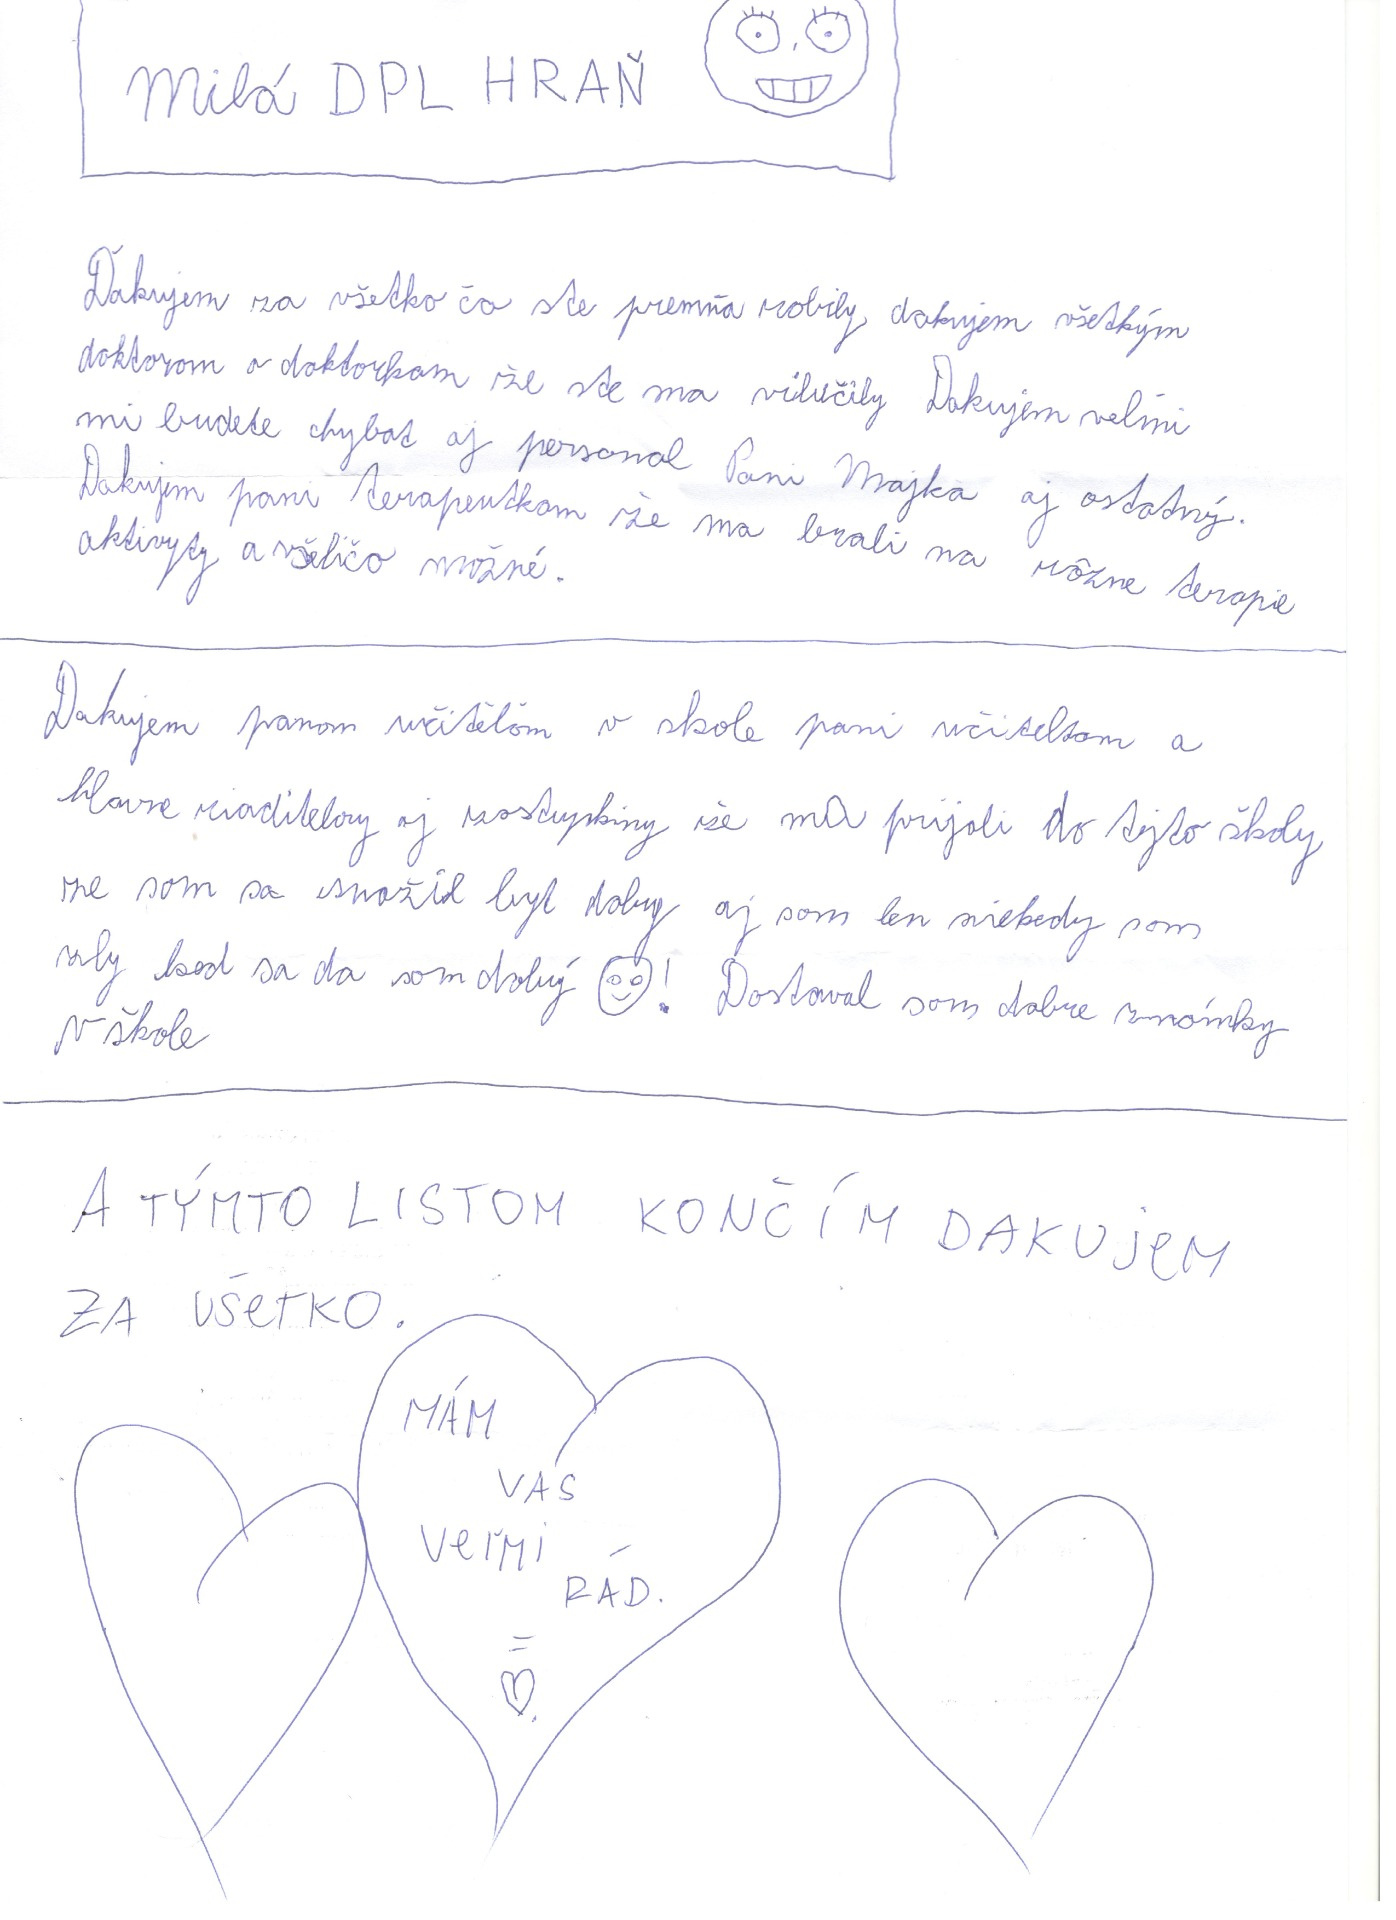 Milá DPL HRAŇ
Ďakujem za všetko čo ste premňa robily, dakujem všetkým
doktorom a doktorkam že ste ma viliečily Dakujem velmi
mi budete chybat aj personal Pani Majka aj ostatný.
Dakujem pani terapeutkam že ma brali na rôzne terapie
aktivyty a všeličo možné.
Dakujem panom učitělom v skole pani učitelkam a
hlavne riaditelovy aj zastupkiny že ma prijali do tejto školy
že som sa snažil byt dobry aj som len niekedy som
zly ked sa da som dobrý ! Dostaval som dobre známky
v škole
A TÝMTO LISTOM KONČÍM DAKUjeM
ZA VŠeTKO.
MÁM
VÁS
Veľmi
RÁD.
=